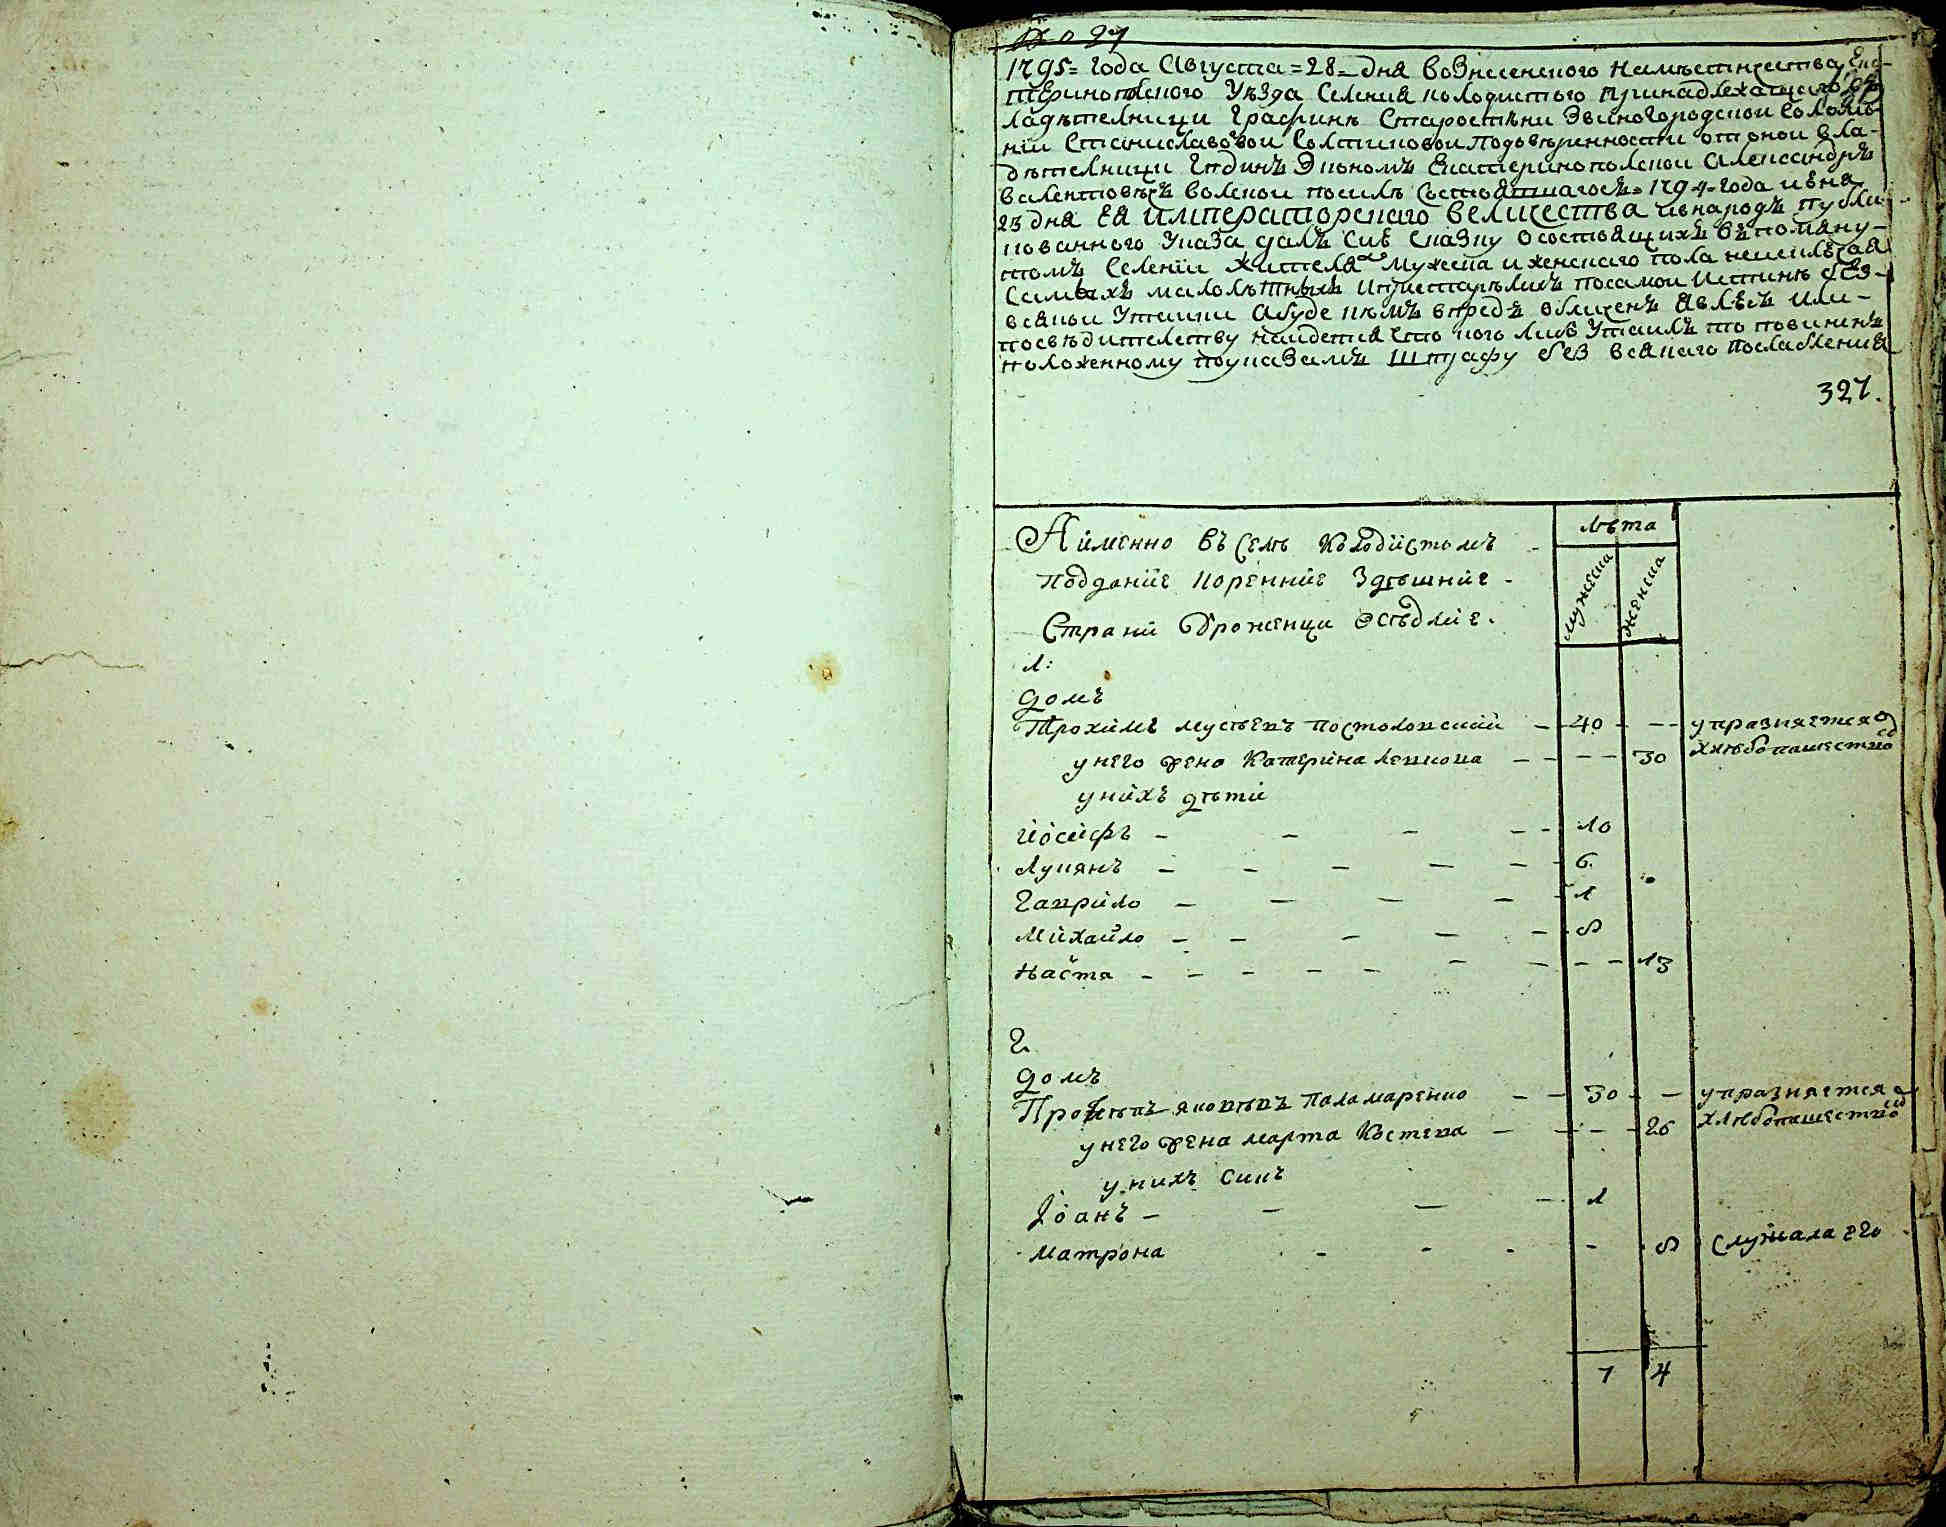 № 27
1795= года Августа =28= дня вознесенского намѣстничества Ека-
теринополского уѣзда селения колодистого принадлежащаго
ладѣтелници графинѣ Старостѣни Звиногородской Соломѣ-
нїи Станиславовой Солтиковой подовѣренности от оной вла-
дѣтелници Економъ Екатеринополской Александръ
волской посилѣ состоявшагось 1794 года июня
23 дня ЕЯ императорскаго величества и в народъ публи-
кованного указа далъ сиѣ сказку о состоящихъ въ помяну-
томъ селении жителя мужеска и женскаго пола неисклѣчая
самыхъ малолѣтныхъ и престарѣлихъ посамои истинѣ без-
всякои утаики абуде кѣмъ впредъ обличенъ явлѣсь или-
посвѣдителству найдется что кого либо утаилъ то повиненъ
положенному поуказамъ штрафу без всякаго послабления
327.
А именно въ селѣ Колодистомъ
подданіе кореннїе здѣшнїе
страни уроженци осѣдліе.
лѣта
мужеска
женска
1:
домъ
Трохимъ мусѣевъ постоловский 40 упразняется
хлѣбопашество
у него жена Катерина левкова 30
у нихъ дѣти
йосифъ 10
Лукянъ 6.
Гаврило 1
Михайло 8
Наста 13
2.
домъ
яковъ паламаренко 30 упразняется
хлѣбопашество
у него жена марта Костева 25
у нихъ синъ
Іоанъ 1
Матрона 8 служала его
7 4